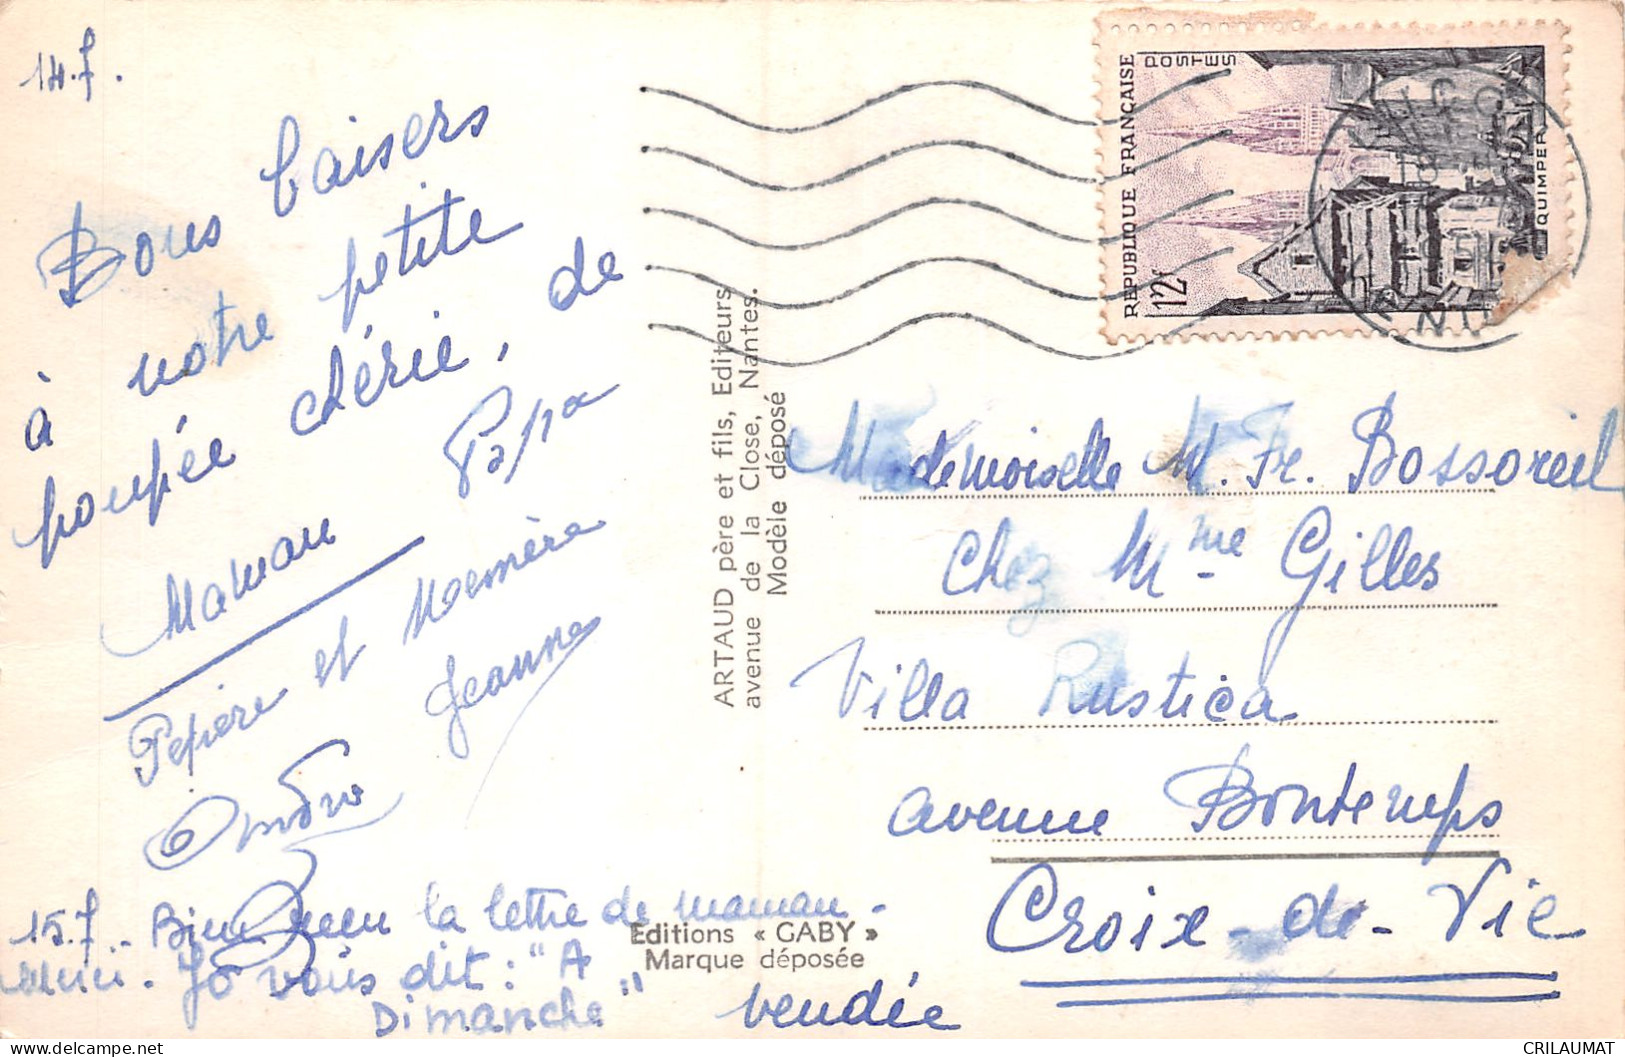 14.7.
Bons baisers
à notre petite
poupée chérie, de
Maman Papa
Pépère et Mémère
Jeanne
André
15.7 - Bien reçu la lettre de maman -
merci. Jo vous dit : "A
Dimanche"
ARTAUD père et fils, Editeurs
avenue de la Close, Nantes.
Modèle déposé
Editions « GABY »
Marque déposée
REPUBLIQUE FRANÇAISE
POSTES
12f
QUIMPER
Mademoiselle M. Fr. Bossoreil
Chez Mme Gilles
Villa Rustica
avenue Bontemps
Croix-de-Vie
Vendée
CRILAUMAT